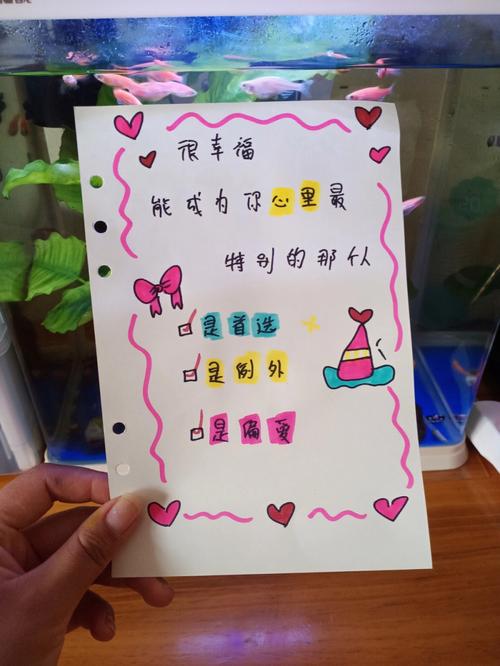 很幸福
能成为你心里最
特别的那从
是首选
是例外
是偏爱